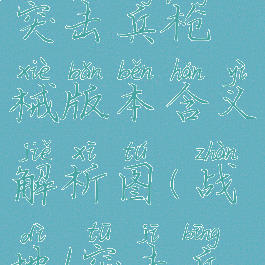 突击兵枪
xiè bǎn běn hán yì
械版本含义
jiě xī tú zhàn
解析图(战
dì tū jī bīng
地)突击兵